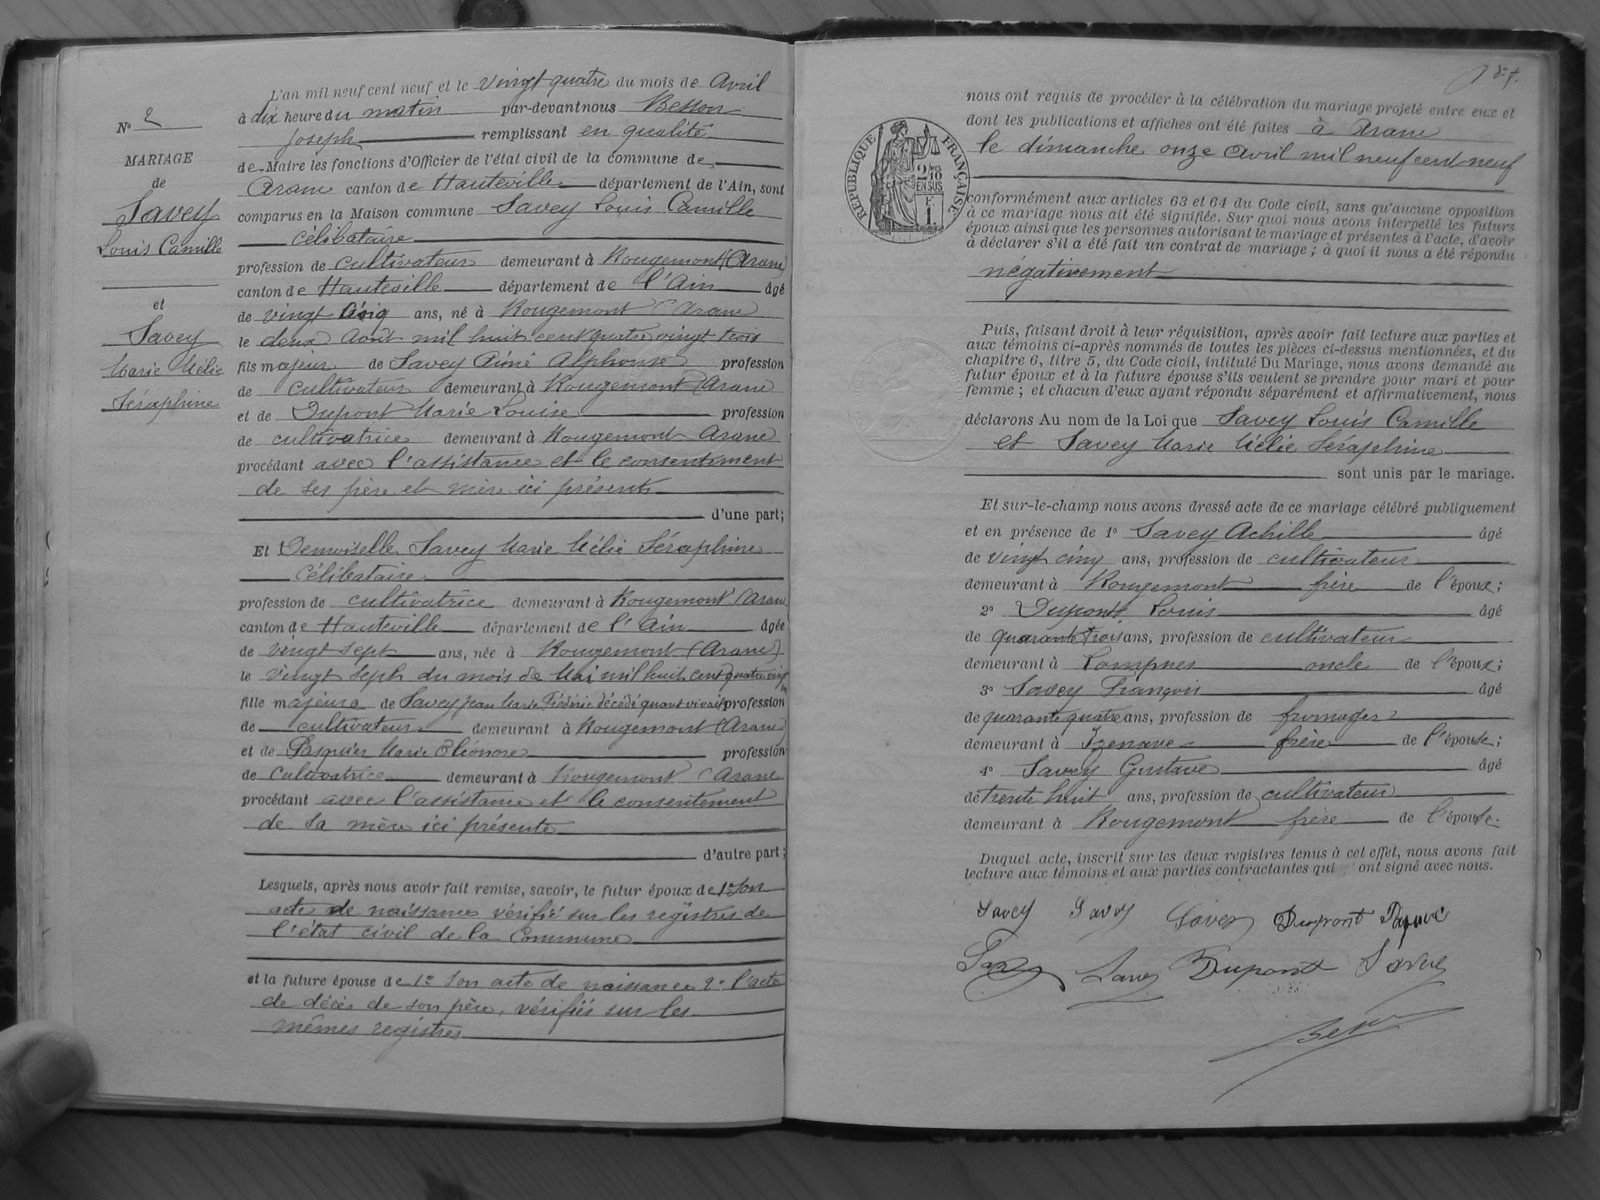 N° 2
MARIAGE
de
Savey
Louis Camille
et
Savey
Marie Mélie
Séraphine
L'an mil neuf cent neuf et le vingt quatre du mois de Avril
à dix heure du matin par-devant nous Besson
Joseph remplissant en qualité
de Maire les fonctions d'Officier de l'état civil de la commune de
Aranc canton de Hauteville département de l'Ain, sont
comparus en la Maison commune Savey Louis Camille
célibataire
profession de cultivateur demeurant à Rougemont (Aranc)
canton de Hauteville département de l'Ain âgé
de vingt cinq ans, né à Rougemont (Aranc
le deux Août mil huit cent quatre vingt trois
fils majeur de Savey Aimé Alphonse profession
de cultivateur demeurant à Rougemont (Aranc
et de Dupont Marie Louise profession
de cultivatrice demeurant à Rougemont Aranc
procédant avec l'assistance et le consentement
de ses père et mère ici présents
d'une part;
Et Demoiselle Savey Marie Mélie Séraphine
célibataire
profession de cultivatrice demeurant à Rougemont (Aranc
canton de Hauteville département de l'Ain âgée
de vingt sept ans, née à Rougemont (Aranc)
le vingt sept du mois de Mai mil huit cent quatre vingt
fille majeure de Savey Jean Marie Frédéric décédé quant vivait profession
de cultivateur demeurant à Rougemont (Aranc)
et de Pasquier Marie Eléonore profession
de cultivatrice demeurant à Rougemont (Aranc
procédant avec l'assistance et le consentement
de sa mère ici présente
d'autre part;
Lesquels, après nous avoir fait remise, savoir, le futur époux de 1° son
acte de naissance vérifié sur les registres de
l'état civil de la Commune
et la future épouse de 1° son acte de naissance 2° l'acte
de décès de son père, vérifiés sur les
mêmes registres
nous ont requis de procéder à la célébration du mariage projeté entre eux et
dont les publications et affiches ont été faites à Aranc
le dimanche onze Avril mil neuf cent neuf
RÉPUBLIQUE FRANÇAISE
2/10
EN SUS
F.
1.
conformément aux articles 63 et 64 du Code civil, sans qu'aucune opposition
à ce mariage nous ait été signifiée. Sur quoi nous avons interpellé les futurs
époux ainsi que les personnes autorisant le mariage et présentes à l'acte, d'avoir
à déclarer s'il a été fait un contrat de mariage ; à quoi il nous a été répondu
négativement
Puis, faisant droit à leur réquisition, après avoir fait lecture aux parties et
aux témoins ci-après nommés de toutes les pièces ci-dessus mentionnées, et du
chapitre 6, titre 5, du Code civil, intitulé Du Mariage, nous avons demandé au
futur époux et à la future épouse s'ils veulent se prendre pour mari et pour
femme ; et chacun d'eux ayant répondu séparément et affirmativement, nous
déclarons Au nom de la Loi que Savey Louis Camille
et Savey Marie Mélie Séraphine
sont unis par le mariage.
Et sur-le-champ nous avons dressé acte de ce mariage célébré publiquement
et en présence de 1° Savey Achille âgé
de vingt cinq ans, profession de cultivateur
demeurant à Rougemont frère de l'époux;
2° Dupont Louis âgé
de quarante trois ans, profession de cultivateur
demeurant à Lompnes oncle de l'époux;
3° Savey François âgé
de quarante quatre ans, profession de fromager
demeurant à Izenave frère de l'épouse;
4° Savey Gustave âgé
de trente huit ans, profession de cultivateur
demeurant à Rougemont frère de l'épouse.
Duquel acte, inscrit sur les deux registres tenus à cet effet, nous avons fait
lecture aux témoins et aux parties contractantes qui ont signé avec nous.
Savey Savey Savey Dupont
Savey Dupont Savey